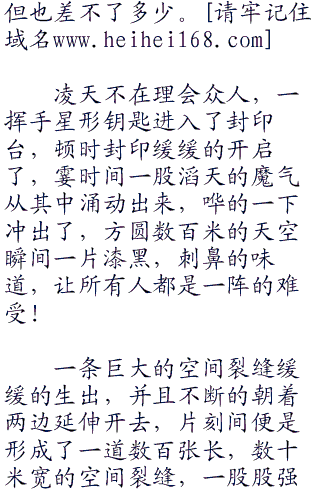 但也差不了多少。[请牢记住
域名www.heihei168.com]
凌天不在理会众人，一
挥手星形钥匙进入了封印
台，顿时封印缓缓的开启
了，霎时间一股滔天的魔气
从其中涌动出来，哗的一下
冲出了，方圆数百米的天空
瞬间一片漆黑，刺鼻的味
道，让所有人都是一阵的难
受！
一条巨大的空间裂缝缓
缓的生出，并且不断的朝着
两边延伸开去，片刻间便是
形成了一道数百张长，数十
米宽的空间裂缝，一股股强